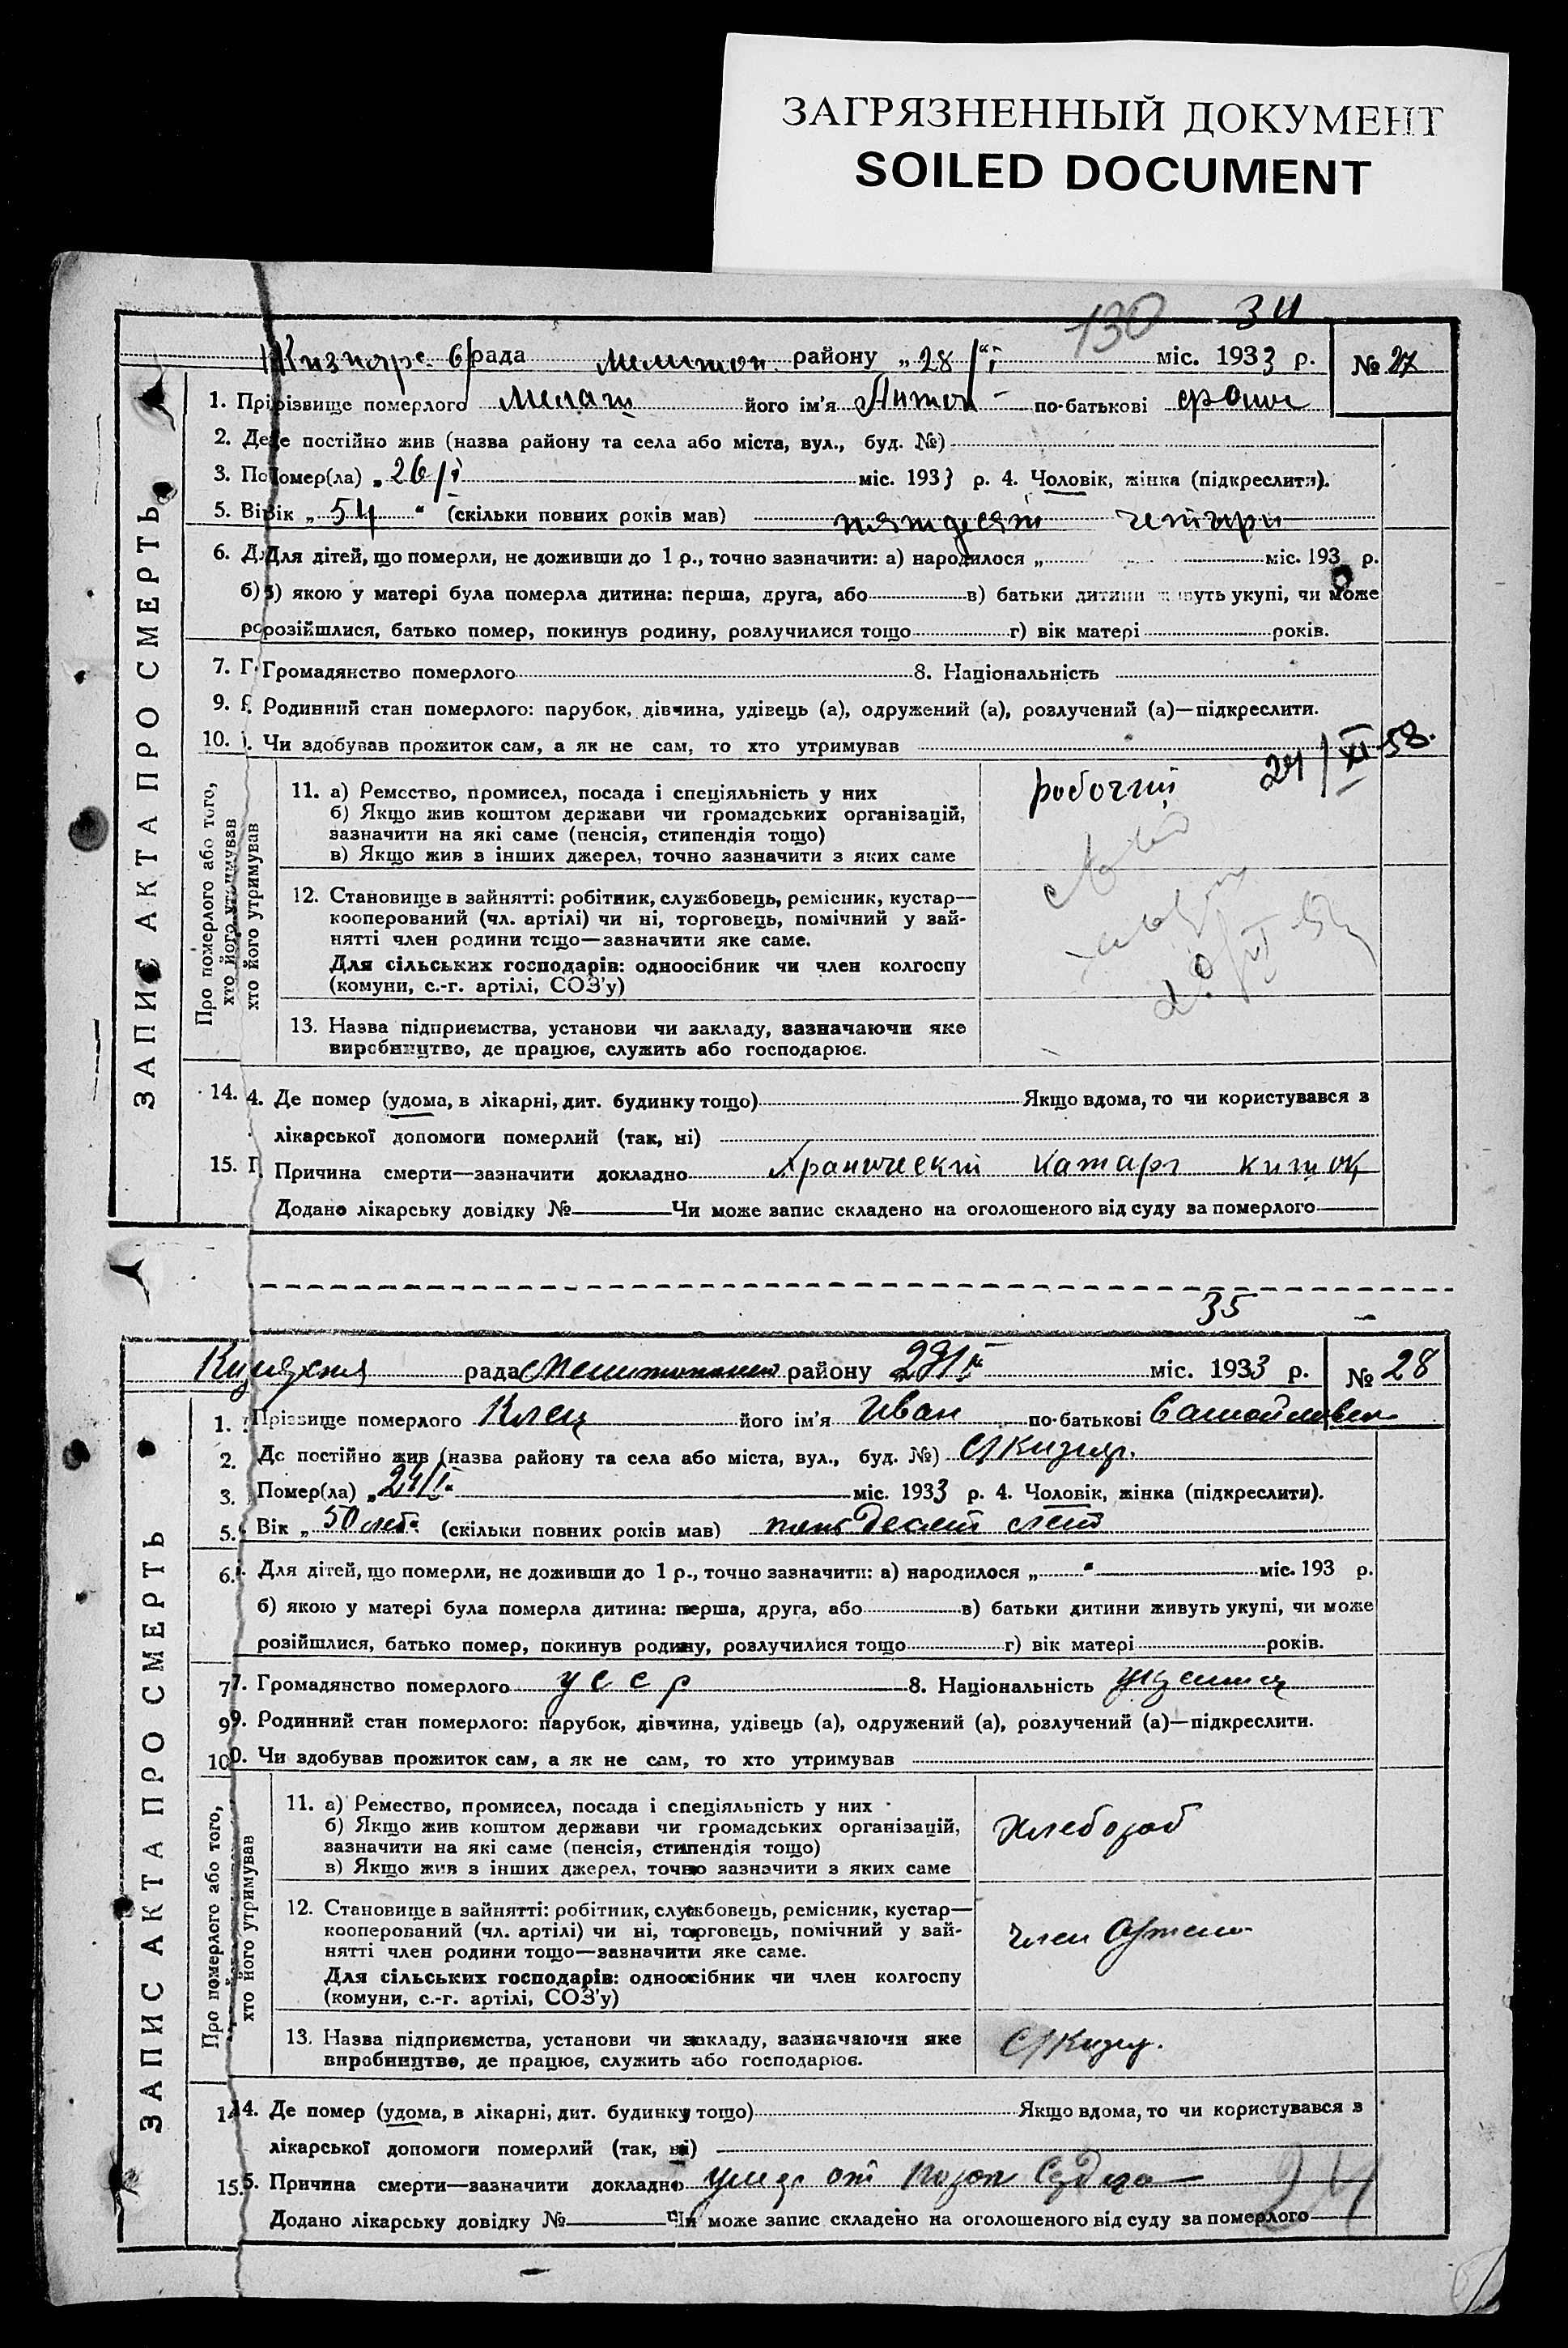 ЗАГРЯЗНЕННЫЙ ДОКУМЕНТ
SOILED DOCUMENT
130 34
рада Мелитоп. району „28/I“ міс. 1933 р. № 27
ЗАПИС АКТА ПРО СМЕРТЬ
1. Прізвище померлого його ім'я Антон по-батькові
2. Де постійно жив (назва району та села або міста, вул., буд. №)
3. Помер(ла) „26/I міс. 1933 р. 4. Чоловік, жінка (підкреслити).
5. Вік „54“ (скільки повних років мав) пятдесят четыри
6. Для дітей, що померли, не доживши до 1 р., точно зазначити: а) народилося „ міс. 193 р.
б) якою у матері була померла дитина: перша, друга, або в) батьки дитини живуть укупі, чи може
розійшлися, батько помер, покинув родину, розлучилися тощо г) вік матері років.
7. Громадянство померлого 8. Національність
9. Родинний стан померлого: парубок, дівчина, удівець (а), одружений (а), розлучений (а)—підкреслити.
10. Чи здобував прожиток сам, а як не сам, то хто утримував
24/XI 58.
Про померлого або того,
хто його утримував
11. а) Ремество, промисел, посада і спеціяльність у них
робочий
б) Якщо жив коштом держави чи громадських організацій,
зазначити на які саме (пенсія, стипендія тощо)
в) Якщо жив з інших джерел, точно зазначити з яких саме
12. Становище в зайнятті: робітник, службовець, ремісник, кустар—
кооперований (чл. артілі) чи ні, торговець, помічний у зай-
нятті член родини тощо—зазначити яке саме.
Для сільських господарів: одноосібник чи член колгоспу
(комуни, с.-г. артілі, СОЗ'у)
13. Назва підприємства, установи чи закладу, зазначаючи яке
виробництво, де працює, служить або господарює.
14. Де помер (удома, в лікарні, дит. будинку тощо) Якщо вдома, то чи користувався з
лікарської допомоги померлий (так, ні)
15. Причина смерти—зазначити докладно Хранический катарг кишок
Додано лікарську довідку № Чи може запис складено на оголошеного від суду за померлого
35
рада Мелитопольск району 29/I міс. 1933 р. № 28
ЗАПИС АКТА ПРО СМЕРТЬ
1. Прізвище померлого Клец його ім'я Иван по-батькові Самойлович
2. Де постійно жив (назва району та села або міста, вул., буд. №) с/Кизияр.
3. Помер(ла) „24/I. міс. 1933 р. 4. Чоловік, жінка (підкреслити).
5. Вік „50 лет“ (скільки повних років мав) пятьдесят лет
6. Для дітей, що померли, не доживши до 1 р., точно зазначити: а) народилося „ “ міс. 193 р.
б) якою у матері була померла дитина: перша, друга, або в) батьки дитини живуть укупі, чи може
розійшлися, батько помер, покинув родину, розлучилися тощо г) вік матері років.
7. Громадянство померлого УССР 8. Національність
9. Родинний стан померлого: парубок, дівчина, удівець (а), одружений (а), розлучений (а)—підкреслити.
10. Чи здобував прожиток сам, а як не сам, то хто утримував
Про померлого або того,
хто його утримував
11. а) Ремество, промисел, посада і спеціяльність у них
б) Якщо жив коштом держави чи громадських організацій,
Хлебороб
зазначити на які саме (пенсія, стипендія тощо)
в) Якщо жив з інших джерел, точно зазначити з яких саме
12. Становище в зайнятті: робітник, службовець, ремісник, кустар—
кооперований (чл. артілі) чи ні, торговець, помічний у зай-
член Артели
нятті член родини тощо—зазначити яке саме.
Для сільських господарів: одноосібник чи член колгоспу
(комуни, с.-г. артілі, СОЗ'у)
13. Назва підприємства, установи чи закладу, зазначаючи яке
с/Кизияр.
виробництво, де працює, служить або господарює.
14. Де помер (удома, в лікарні, дит. будинку тощо) Якщо вдома, то чи користувався з
лікарської допомоги померлий (так, ні)
15. Причина смерти—зазначити докладно от Порок Сердца
24
Додано лікарську довідку № Чи може запис складено на оголошеного від суду за померлого